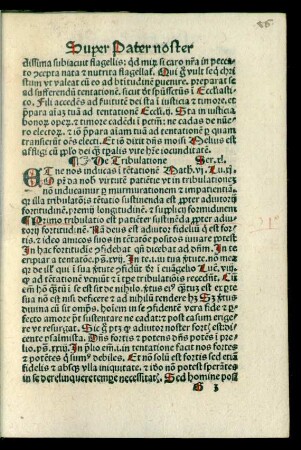 86
Super Pater noster
dissima subiacuit flagellis: qđ mirū si caro nr̄a in pecca
to ꝯcepta nata ⁊ nutrita flagellaƭ. Qui g̊ vult seqͥ chri
stum vt valeat cū eo ad btītudinē ꝑuenire. preparat se
ad sufferendū tentationē. sicut vt spūsscūs ī Ecclīasti
co. Fili accedēs ad ꝯuitutē dei sta ī iusticia ⁊ timore. et
ꝓpara aīaꝫ tuā ad tentationē Eccīi. ij. Sta in iusticia
bonoꝝ opeꝝ ⁊ ī timore cadēdi ī pctm̄: ne cadas de nūe
ro electoꝝ. ⁊ iō ꝓpara aīam tuā ad tentationē ꝑ quam
transierūt oēs electi. Et iō dixit dn̄s moisi Melius est
affligi cū ipso dei qͣꝫ tꝑalis vite hr̄e iocunditatē.
¶ De Tribulatione Ser. xl.
ET ne nos inducas ī tētationē Math. vj. Lu. xj.
ꝓ da nob̓ virtutē patiētie vt in tribulationibꝰ
nō inducamur ꝑ murmurationem ⁊ impatientiā.
qꝛ illa tribulatiōis tētatio sustinenda est ꝓpter adiutoris
fortitudinē. premij longitudinē. ⁊ supplicij formidinem
¶ Primo tribulatio est patiēter sustinēda ꝓpter adiu
torij fortitudinē. Nā deus est adiutor fideliū q̄ est for
tis. ⁊ ideo amicos suos in tētatōe positos iuuare ꝑōt est
In hac fortitudie ꝯfidebat qn̄ dicebat ad dn̄m. In te
eripiar a tentatōe. ps̄. xvij. In te. i. in tua ƒtitutē. nō meaꝫ
qꝛ de illi̓ qui ī sua ƒtute ꝯfidūt dr̄ ī euāgelio Luc̄. viij.
qꝛ ad tētationē veniūt ⁊ ī tꝑe tribulatiōis recedēt. Cū
eīm hō qͣtūcūqꝫ ī se est sit de nihilo. ƒtus eiꝰ qͣtūcūqꝫ est ex ꝑte
sua nō est nisi deficere ⁊ ad nihilū tendere hꝫ Sꝫ ƒtus
diuina cū sit om̄p̄s. hoīem in se ꝯfidentē vera fide ⁊ ꝑ
fecto amore pōt sustentare ne cadat ⁊ post casum erige
re vt resurgat. Sic g̊ ptꝫ qꝛ adiutor noster fortꝭ est: di
cente psalmista. Dn̄s fortis ⁊ potens dn̄s potēs ī pre
lio. ps̄. xxiij. In p̄lio em̄. i. in tentatione facit nos fortes
⁊ potētes qͥ sumꝰ debiles. Et nō solū est fortis sed etiā
fidelis ⁊ absqꝫ vlla iniquitate. ⁊ iō nō potest sperātes
in se derelinquere tempe necessitatꝭ. Sed homine posi
G 3